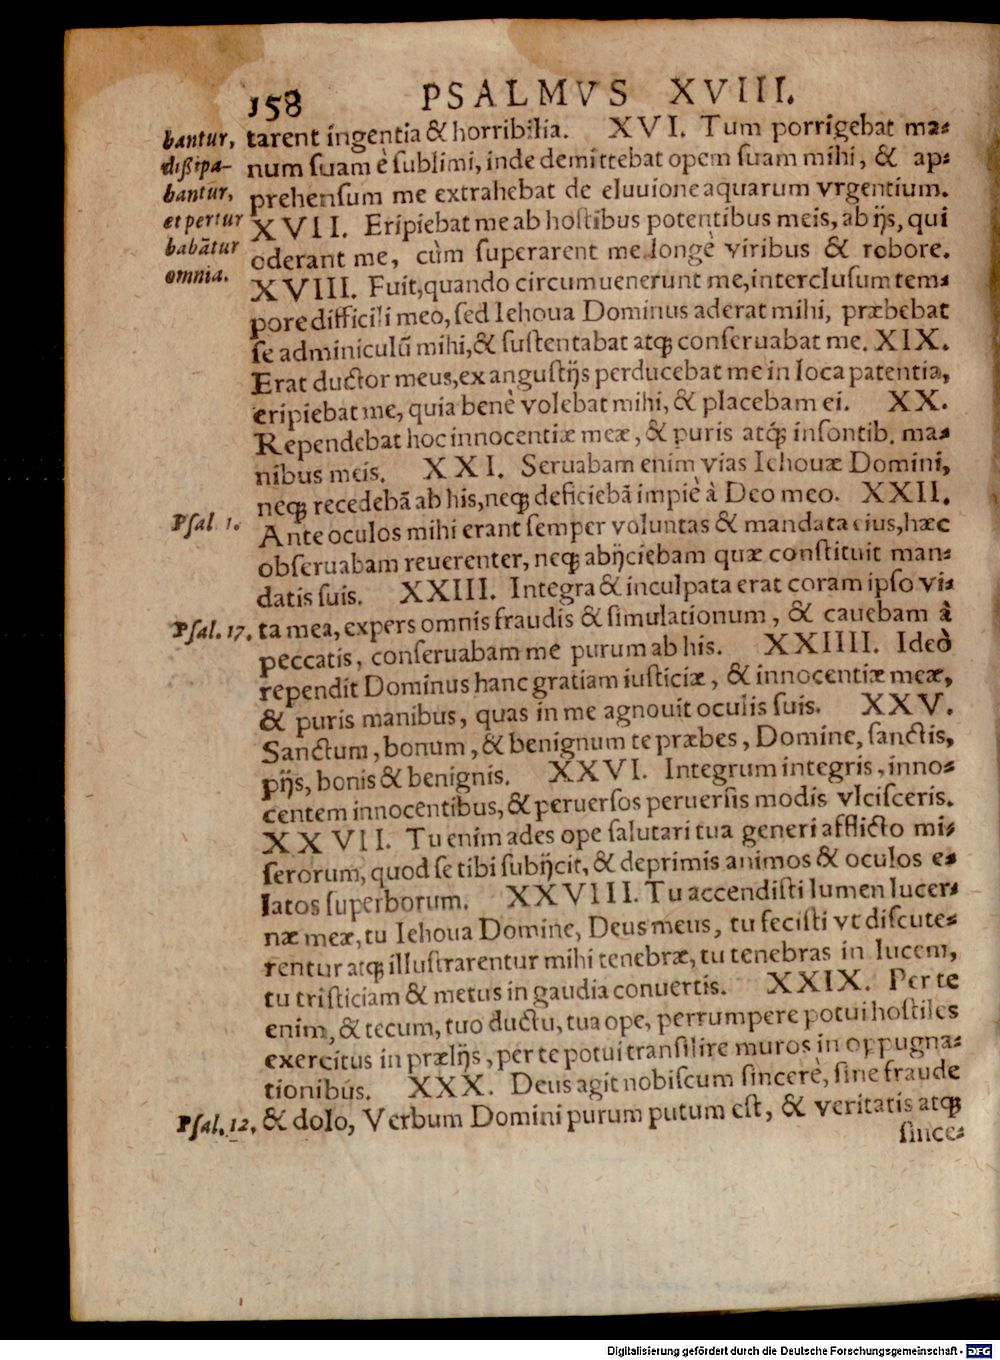 158 PSALMVS XVIII.
bantur,
dißipa-
bantur,
et pertur
babãtur
omnia.
tarent ingentia & horribilia. XVI. Tum porrigebat ma⸗
num ſuam è ſublimi, inde demittebat opem ſuam mihi, & ap⸗
prehenſum me extrahebat de eluuione aquarum vrgentium.
XVII. Eripiebat me ab hoſtibus potentibus meis, ab ijs, qui
oderant me, cùm ſuperarent me longè viribus & robore.
XVIII. Fuit, quando circumuenerunt me, intercluſum tem⸗
pore difficili meo, ſed Iehoua Dominus aderat mihi, præbebat
ſe adminiculũ mihi, & ſuſtentabat atq́; conſeruabat me. XIX.
Erat ductor meus, ex anguſtijs perducebat me in loca patentia,
eripiebat me, quia benè volebat mihi, & placebam ei. XX.
Rependebat hoc innocentiæ meæ, & puris atq́; inſontib. ma⸗
nibus meis. XXI. Seruabam enim vias Iehouæ Domini,
neq; recedebã ab his, neq; deficiebã impiè à Deo meo. XXII.
Pſal 1.
Ante oculos mihi erant ſemper voluntas & mandata eius, hæc
obſeruabam reuerenter, neq; abijciebam quæ conſtituit man⸗
datis ſuis. XXIII. Integra & inculpata erat coram ipſo vi⸗
Pſal. 17.
ta mea, expers omnis fraudis & ſimulationum, & cauebam à
peccatis, conſeruabam me purum ab his. XXIIII. Ideò
rependit Dominus hanc gratiam iuſticiæ, & innocentiæ meæ,
& puris manibus, quas in me agnouit oculis ſuis. XXV.
Sanctum, bonum, & benignum te præbes, Domine, ſanctis,
pijs, bonis & benignis. XXVI. Integrum integris, inno⸗
centem innocentibus, & peruerſos peruerſis modis vlciſceris.
XXVII. Tu enim ades ope ſalutari tua generi afflicto mi⸗
ſerorum, quod ſe tibi ſubijcit, & deprimis animos & oculos e⸗
latos ſuperborum. XXVIII. Tu accendiſti lumen lucer⸗
næ meæ, tu Iehoua Domine, Deus meus, tu feciſti vt diſcute⸗
rentur atq; illuſtrarentur mihi tenebræ, tu tenebras in lucem,
tu triſticiam & metus in gaudia conuertis. XXIX. Per te
enim, & tecum, tuo ductu, tua ope, perrumpere potui hoſtiles
exercitus in prælijs, per te potui tranſilire muros in oppugna⸗
tionibus. XXX. Deus agit nobiſcum ſincerè, ſine fraude
Pſal. 12.
& dolo, Verbum Domini purum putum eſt, & veritatis atq;
ſince⸗
Digitalisierung gefördert durch die Deutsche Forschungsgemeinschaft - DFG